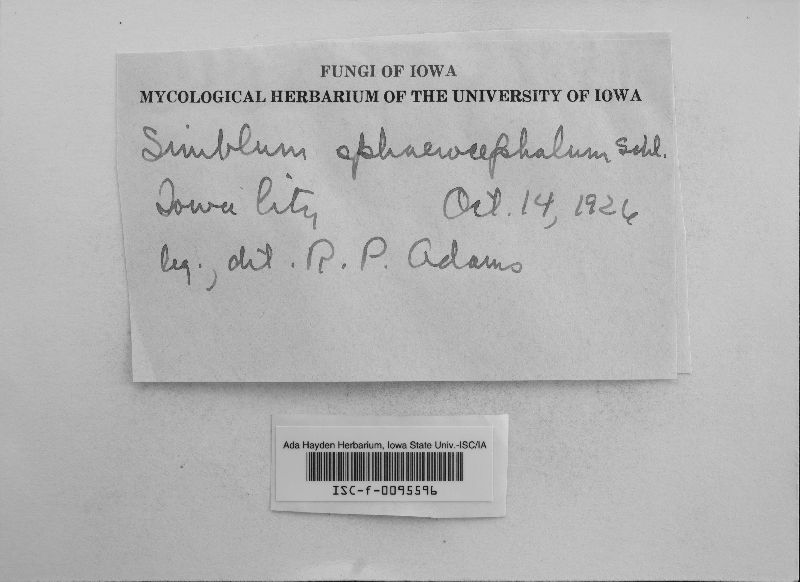 FUNGI OF IOWA
MYCOLOGICAL HERBARIUM OF THE UNIVERSITY OF IOWA
Simblum sphaerocephalum Schl.
Iowa City Oct. 14, 1926
leg., det. R. P. Adams
Ada Hayden Herbarium, Iowa State Univ.-ISC/IA
ISC-f-0095596